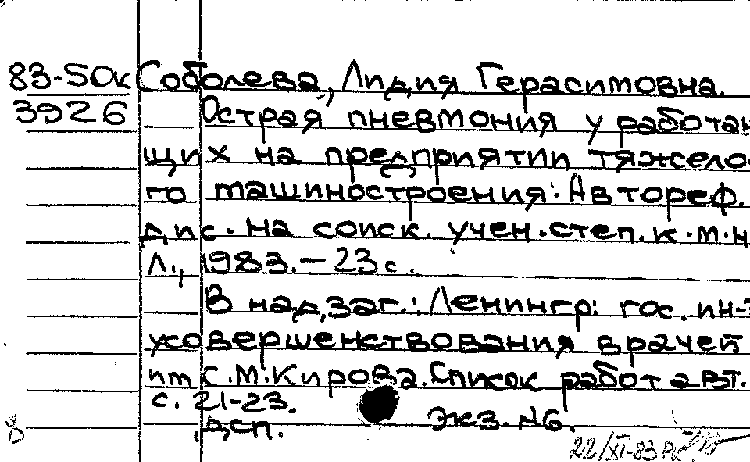 83-50к Соболева, Лидия Герасимовна.
3926 Острая пневмония у работаю
щих на предприятии тяжело-
го машиностроения: Автореф.
дис. на соиск. учен. степ. к.м.н
Л., 1983. – 23 с.
В надзаг.: Ленингр. гос. ин-т
усовершенствования врачей
им С.М. Кирова. Список работ авт.
с. 21-23.
ДСП. Экз. №6.
22/XI-83
8